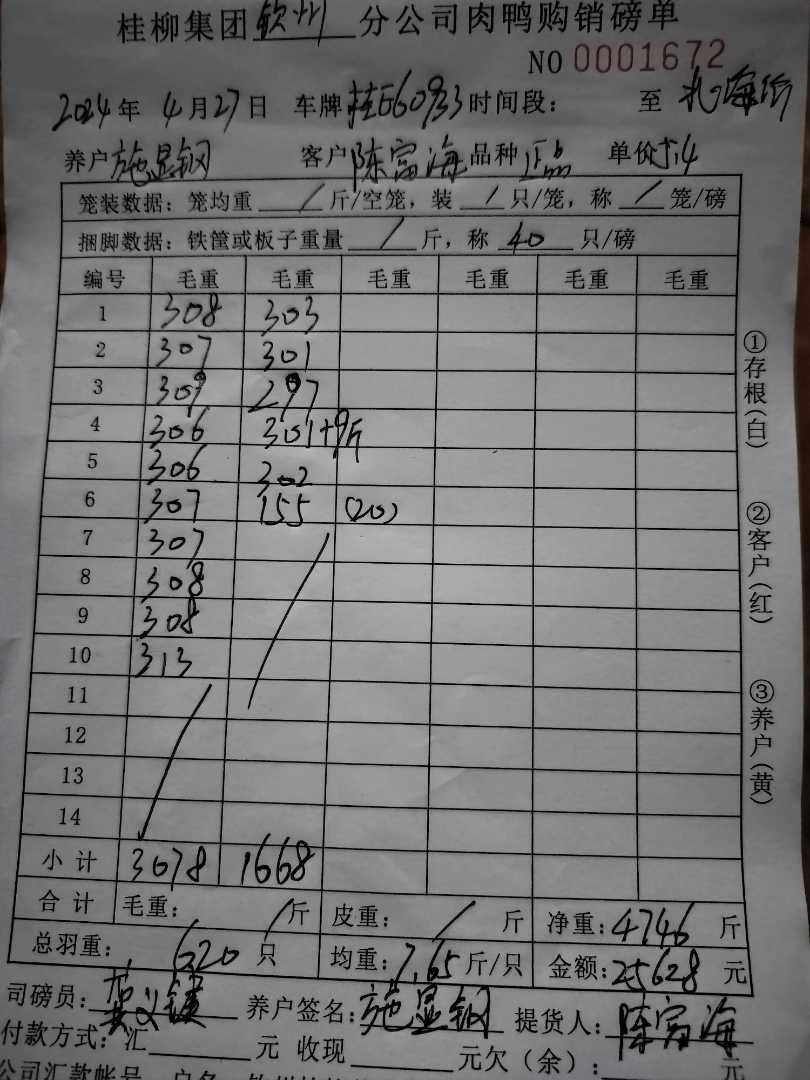 桂柳集团钦州分公司肉鸭购销磅单
NO 0001672
2024年 4月27日 车牌桂E60933时间段： 至 北海街
养户施显钢 客户陈富海品种 正品 单价5.4
笼装数据：笼均重 / 斤/空笼，装 / 只/笼，称 / 笼/磅
捆脚数据：铁筐或板子重量 / 斤，称 40 只/磅
编号 毛重 毛重 毛重 毛重 毛重 毛重
1 308 303
2 307 301
3 309 297
4 306 301+9斤
5 306 302
6 307 155 (20)
7 307
8 308
9 308
10 313
11
12
13
14
小计 3078 1668
合计 毛重： / 斤 皮重： / 斤 净重：4746 斤
总羽重： 620 只 均重：7.65斤/只 金额：25628 元
司磅员： 养户签名：施显钢 提货人：陈富海
付款方式：汇 元 收现 元欠（余）： 元
①存根（白）
②客户（红）
③养户（黄）